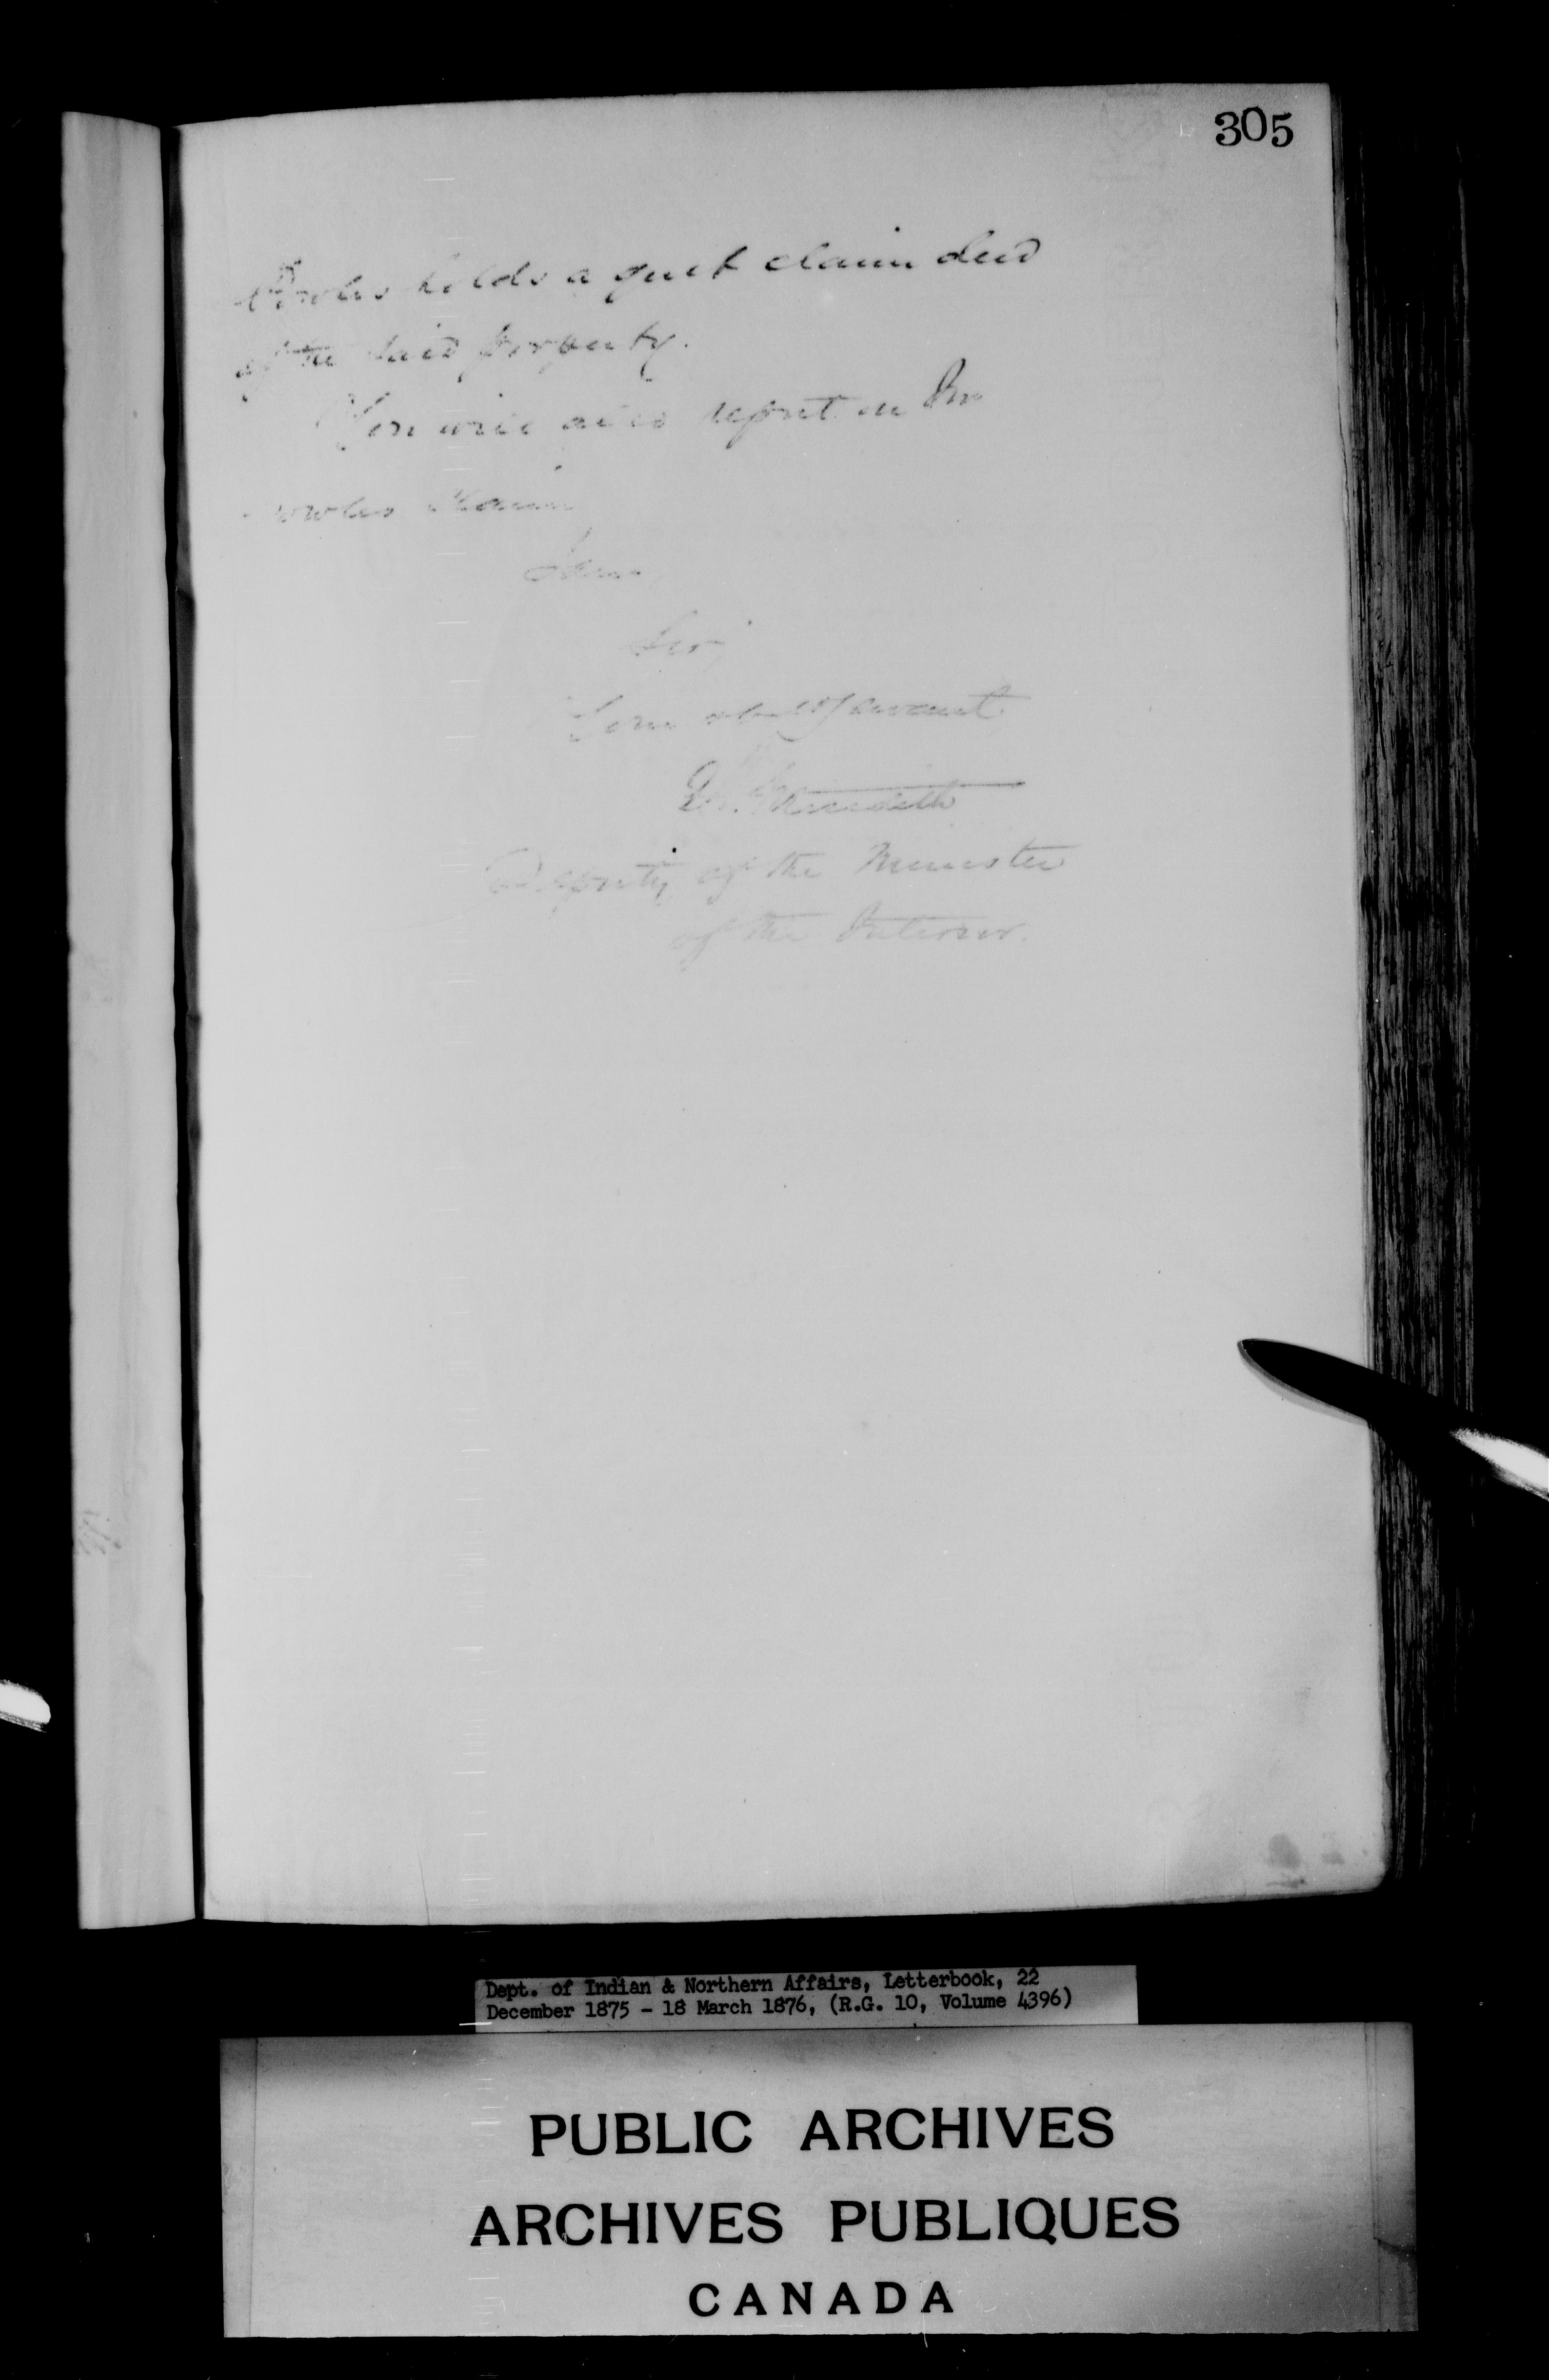 305
holds a quit claim deed
of the said property.
You will also report on Mr
claim
I am
Sir,
Your obdt servant
E. A. Meredith
Deputy of the Minister
of the Interior.
Dept. of Indian & Northern Affairs, Letterbook, 22
December 1875 - 18 March 1876, (R.G. 10, Volume 4396)
PUBLIC ARCHIVES
ARCHIVES PUBLIQUES
CANADA